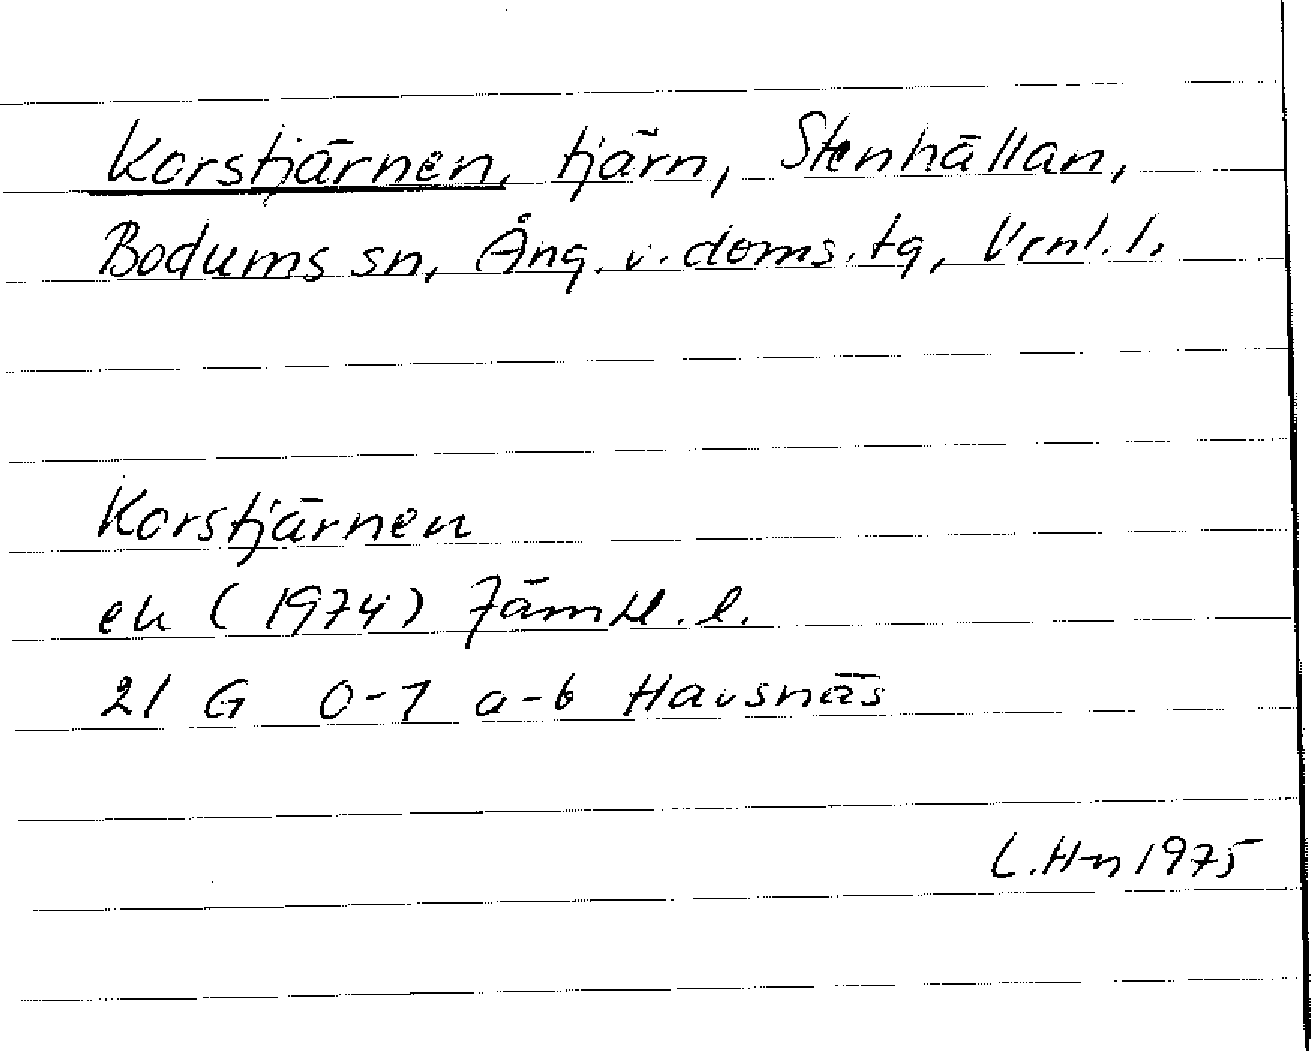 Korstjärnen, tjärn, Stenhällan,
Bodums sn, Ång. v. doms. tg, Vrnl. l.
Korstjärnen
ek (1974) Jämtl. l.
21 G 0-1 a-b Havsnäs
L.H-n 1975